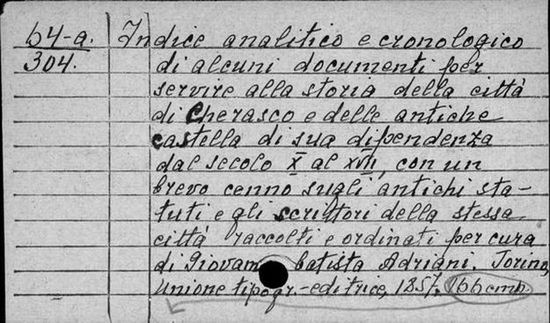 64-a. Indice analitico e cronologico
304. di alcuni documenti per
servire alla storia della città
di Cherasco e delle antiche
castella di sua dipendenza
dal secolo X al XVII, con un
brevo cenno sugli antichi sta-
tuti e gli scrittori della stessa
città raccolti e ordinati per cura
di Giovann Batista Adriani. Torino,
Unione tipogr.-editrice, 1857. 166 cmb.